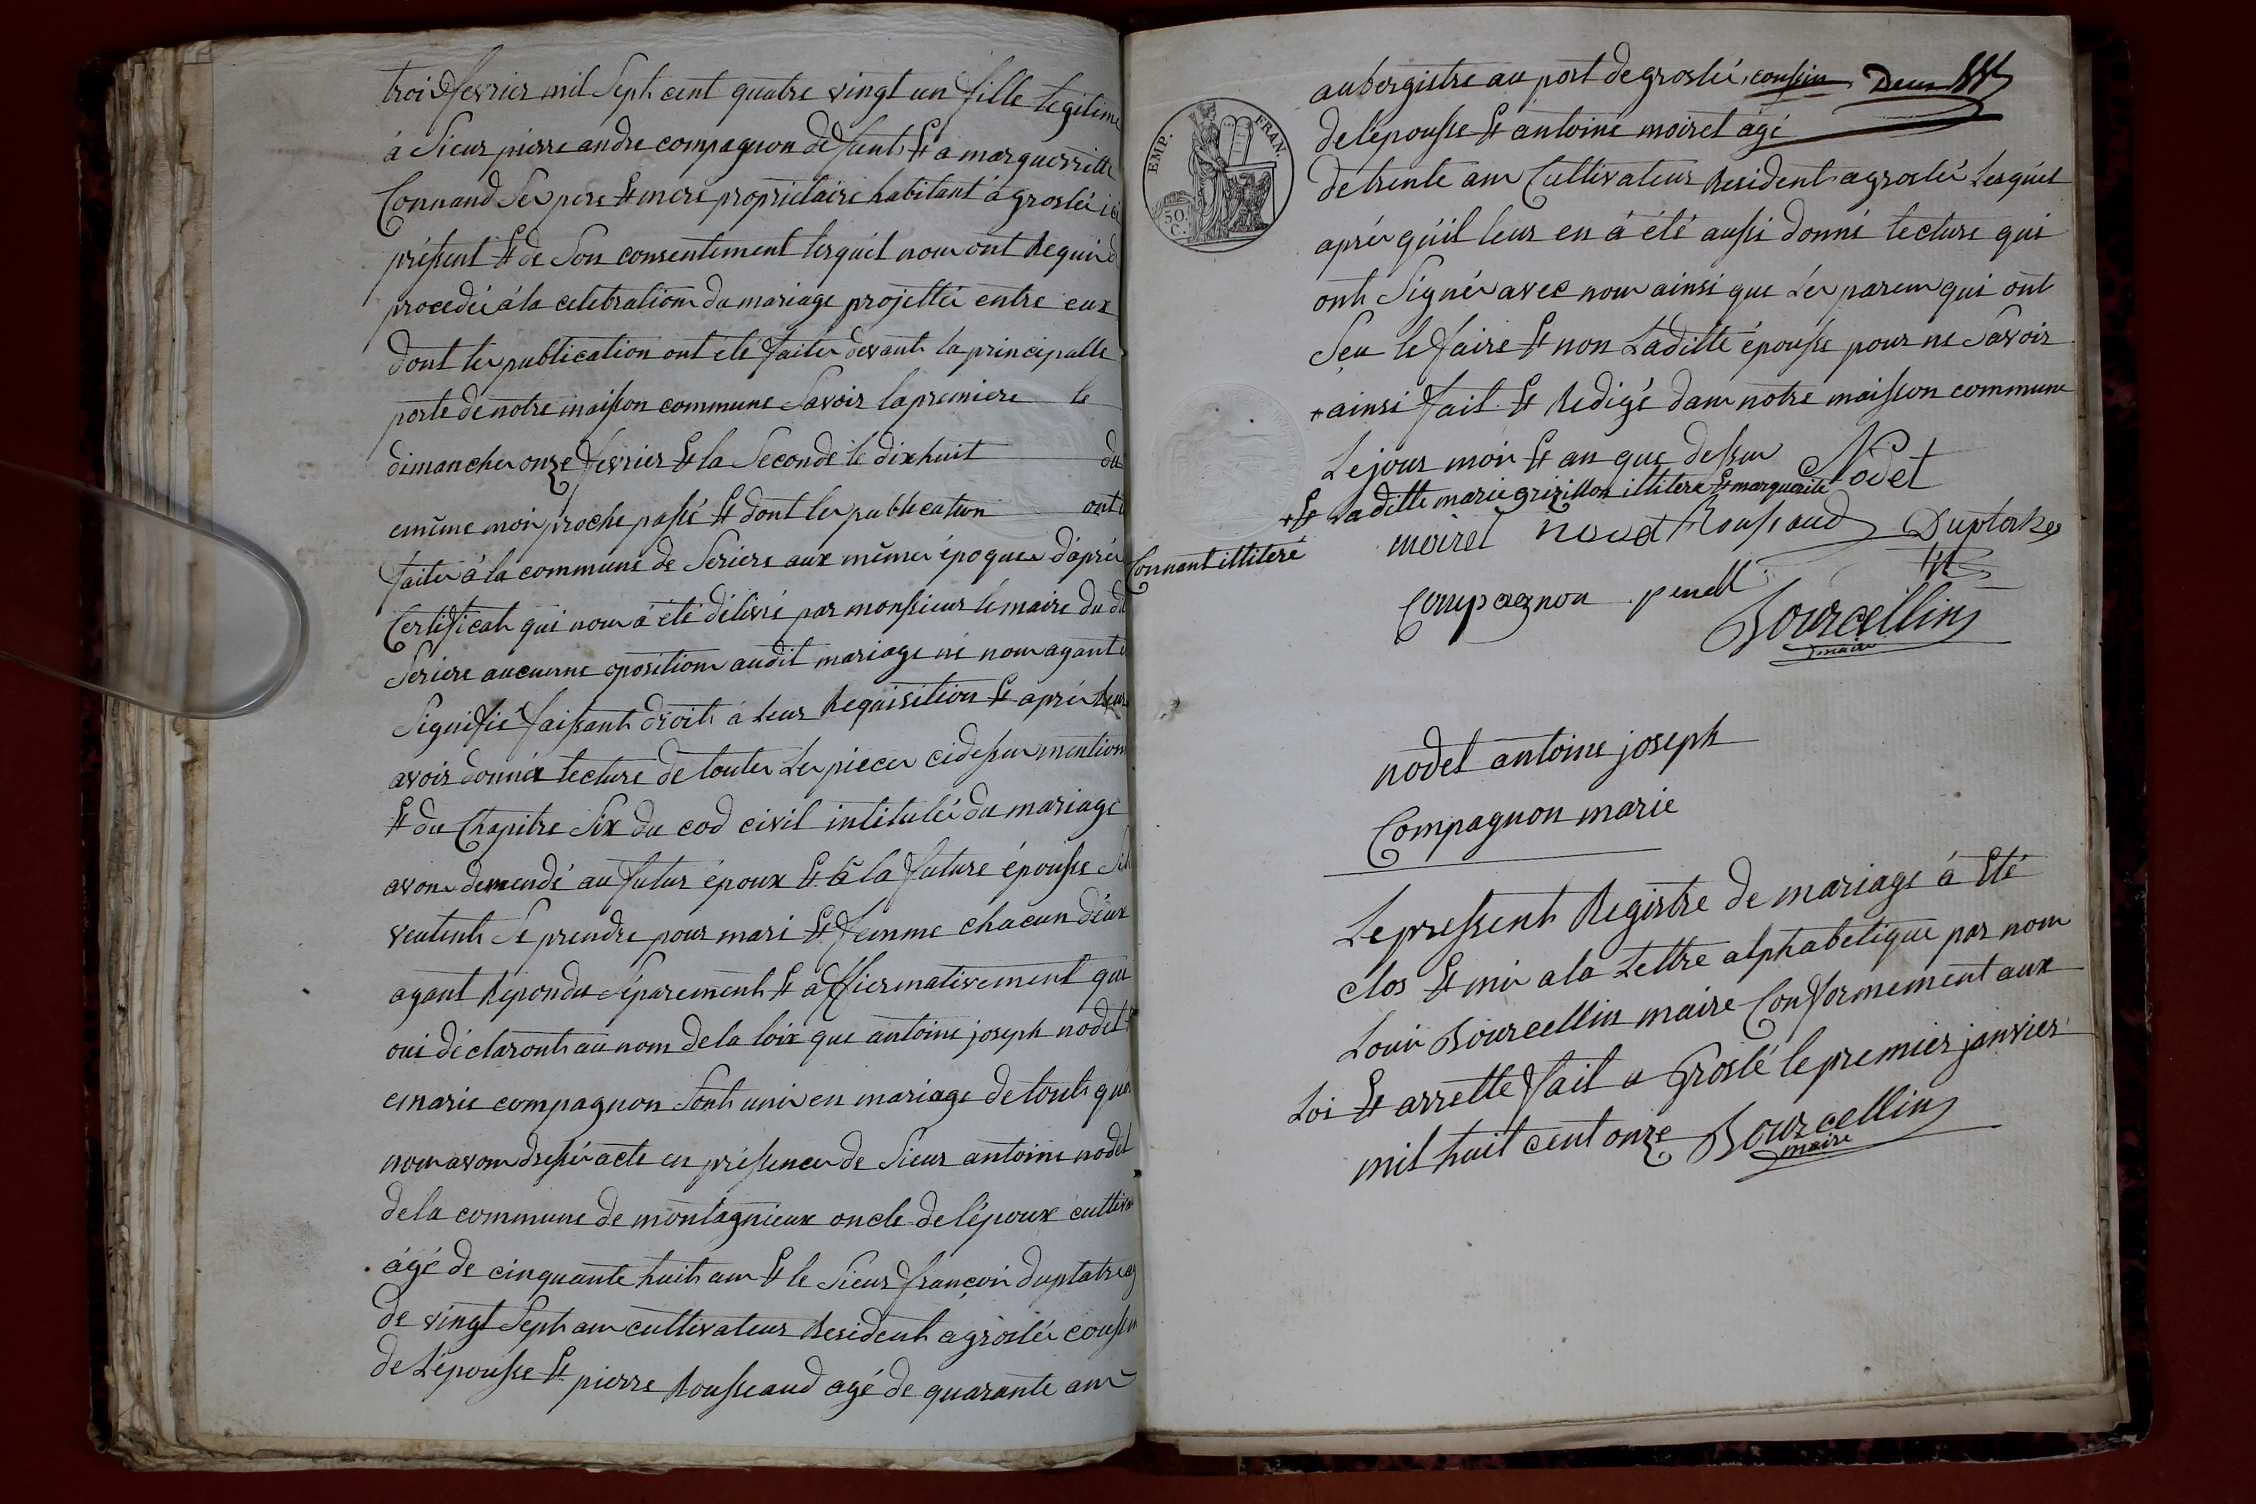 trois fevrier mil Sept cent quatre vingt un fille legitime
à Sieur pierre andre compagnon deffunt & a marguerritte
Connand Ses pere & mere proprietaire habitant à groslée ici
présent & de Son consentement lesquel nous ont Requis de
procedée à la celebration du mariage projettée entre eux
dont les publication ont été faites devant la principalle
porte de notre maisson commune Savoir la premiere le
dimanche onze fevrier & la Seconde le dix huit du
même mois proche passé & dont les publication ont
faites à la commune de Seriere aux mêmes époques d'aprés
Certificat qui nous à été délivré par monssieur le maire du dit
Seriere aucunne oposition audit mariage ne nous ayant
Signifié faissant droit à Leur Requisition & aprés Leur
avoir donnée lecture de toutes Les pieces cidessus mention
& du Chapitre Six du cod civil intitulée du mariage
avons demendé au futur époux & à la future épousse S'il
veulent Se prendre pour mari & femme chacun d'eux
ayant Repondu Séparement & affiermativement que
oui déclaront au nom de la loix que antoine joseph nodet &
marie compagnon Sont unis en mariage de tout quoi
nous avons dressé acte en préssence de Sieur antoine nodet
de la commune de montagnieux oncle de l'époux cultiva
âgé de cinquante huit ans & le Sieur françois duplatre ag
de vingt Sept ans cultivateur Resident a groslée coussin
de L'épousse & pierre Rousseaud agé de quarante ans
EMP. FRAN.
50 C.
aubergistre au port de groslée, coussin
de l'épousse & antoine moiret âgé
de trente ans Cultivateur Resident a groslée Lesquel
aprés qu'il leur en à été aussi donné lecture qui
ont Signée avec nous ainsi que Les parens qui ont
Seu le faire & non Laditte épousse pour ne Savoir
+ ainsi fait & Redigé dans notre maisson commune
Le jour mois & an que dessus Nodet
+ & Laditte marie grizillon illitere & marguerite
Connant illiteré
moiret nodet Roussaud Duplatre
Compagnon penell
Bourcellin
maire
nodet antoine joseph
Compagnon marie
Le pressent Registre de mariage à Eté
clos & mis a la Lettre alphabetique par nous
Louis Bourcellin maire Conformement aux
Loi & arrette fait a Groslé le premier janvier
mil huit cent onze Bourcellin
maire